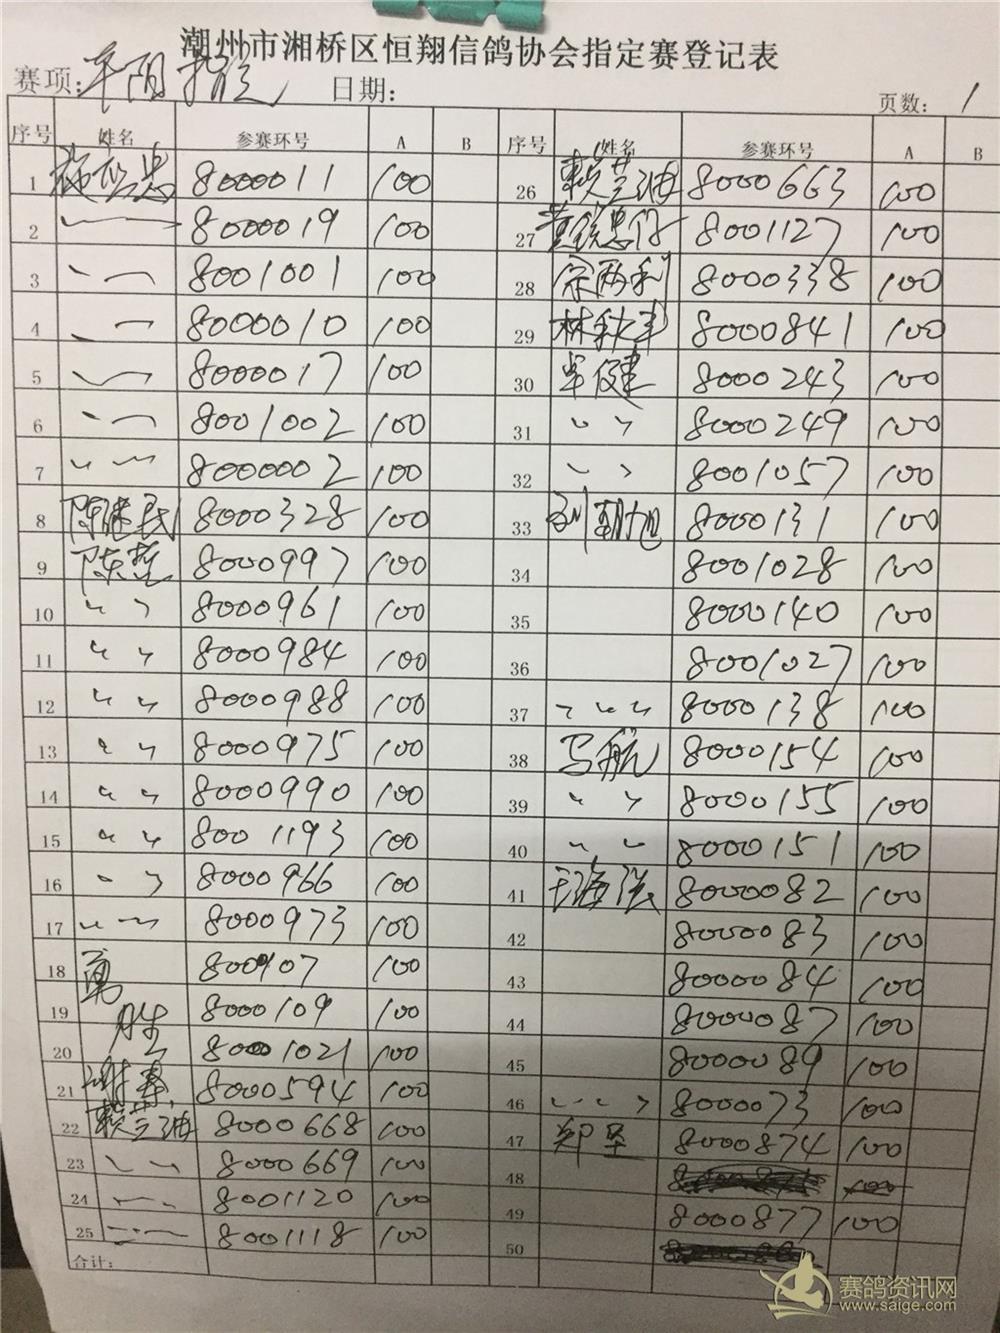 潮州市湘桥区恒翔信鸽协会指定赛登记表
赛项: 平阴 指定 日期: 页数: 1
序号 姓名 参赛环号 A B 序号 姓名 参赛环号 A B
1 8000011 100 26 赖芝油 8000663 100
2 8000019 100 27 8001127 100
3 8001001 100 28 8000338 100
4 8000010 100 29 8000841 100
5 8000017 100 30 8000243 100
6 8001002 100 31 〃 8000249 100
7 〃 8000002 100 32 〃 8001057 100
8 陈继民 8000328 100 33 刘朝旭 8000131 100
9 陈哲 8000997 100 34 8001028 100
10 〃 8000961 100 35 8000140 100
11 〃 8000984 100 36 8001027 100
12 〃 8000988 100 37 〃 8000138 100
13 〃 8000975 100 38 马航 8000154 100
14 〃 8000990 100 39 〃 8000155 100
15 〃 8001193 100 40 〃 8000151 100
16 〃 8000966 100 41 8000082 100
17 〃 8000973 100 42 8000083 100
18 100 43 8000084 100
19 胜 8000109 100 44 8000087 100
20 8001021 100 45 8000089 100
21 8000594 100 46 〃 8000073 100
22 赖芝油 8000668 100 47 郑坚 8000874 100
23 8000669 100 48 100
24 8001120 100 49 8000877 100
25 8001118 100 50
合计:
赛鸽资讯网
www.saige.com